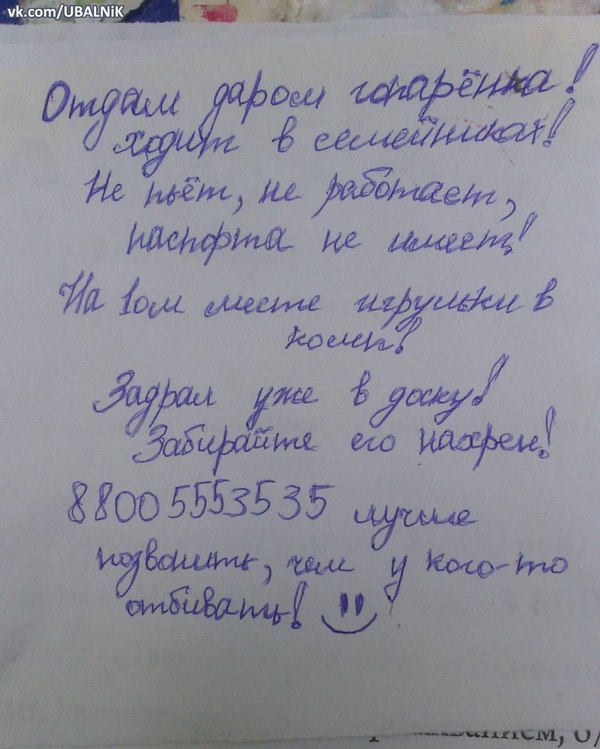 vk.com/UBALNiK
Отдам даром гопарёнка!
ходит в семейниках!
Не пьёт, не работает,
паспорта не имеет!
На 1ом месте игрульки в
комп!
Задрал уже в доску!
Забирайте его нахрен!
88005553535 лучше
позвонить, чем у кого-то
отбивать!